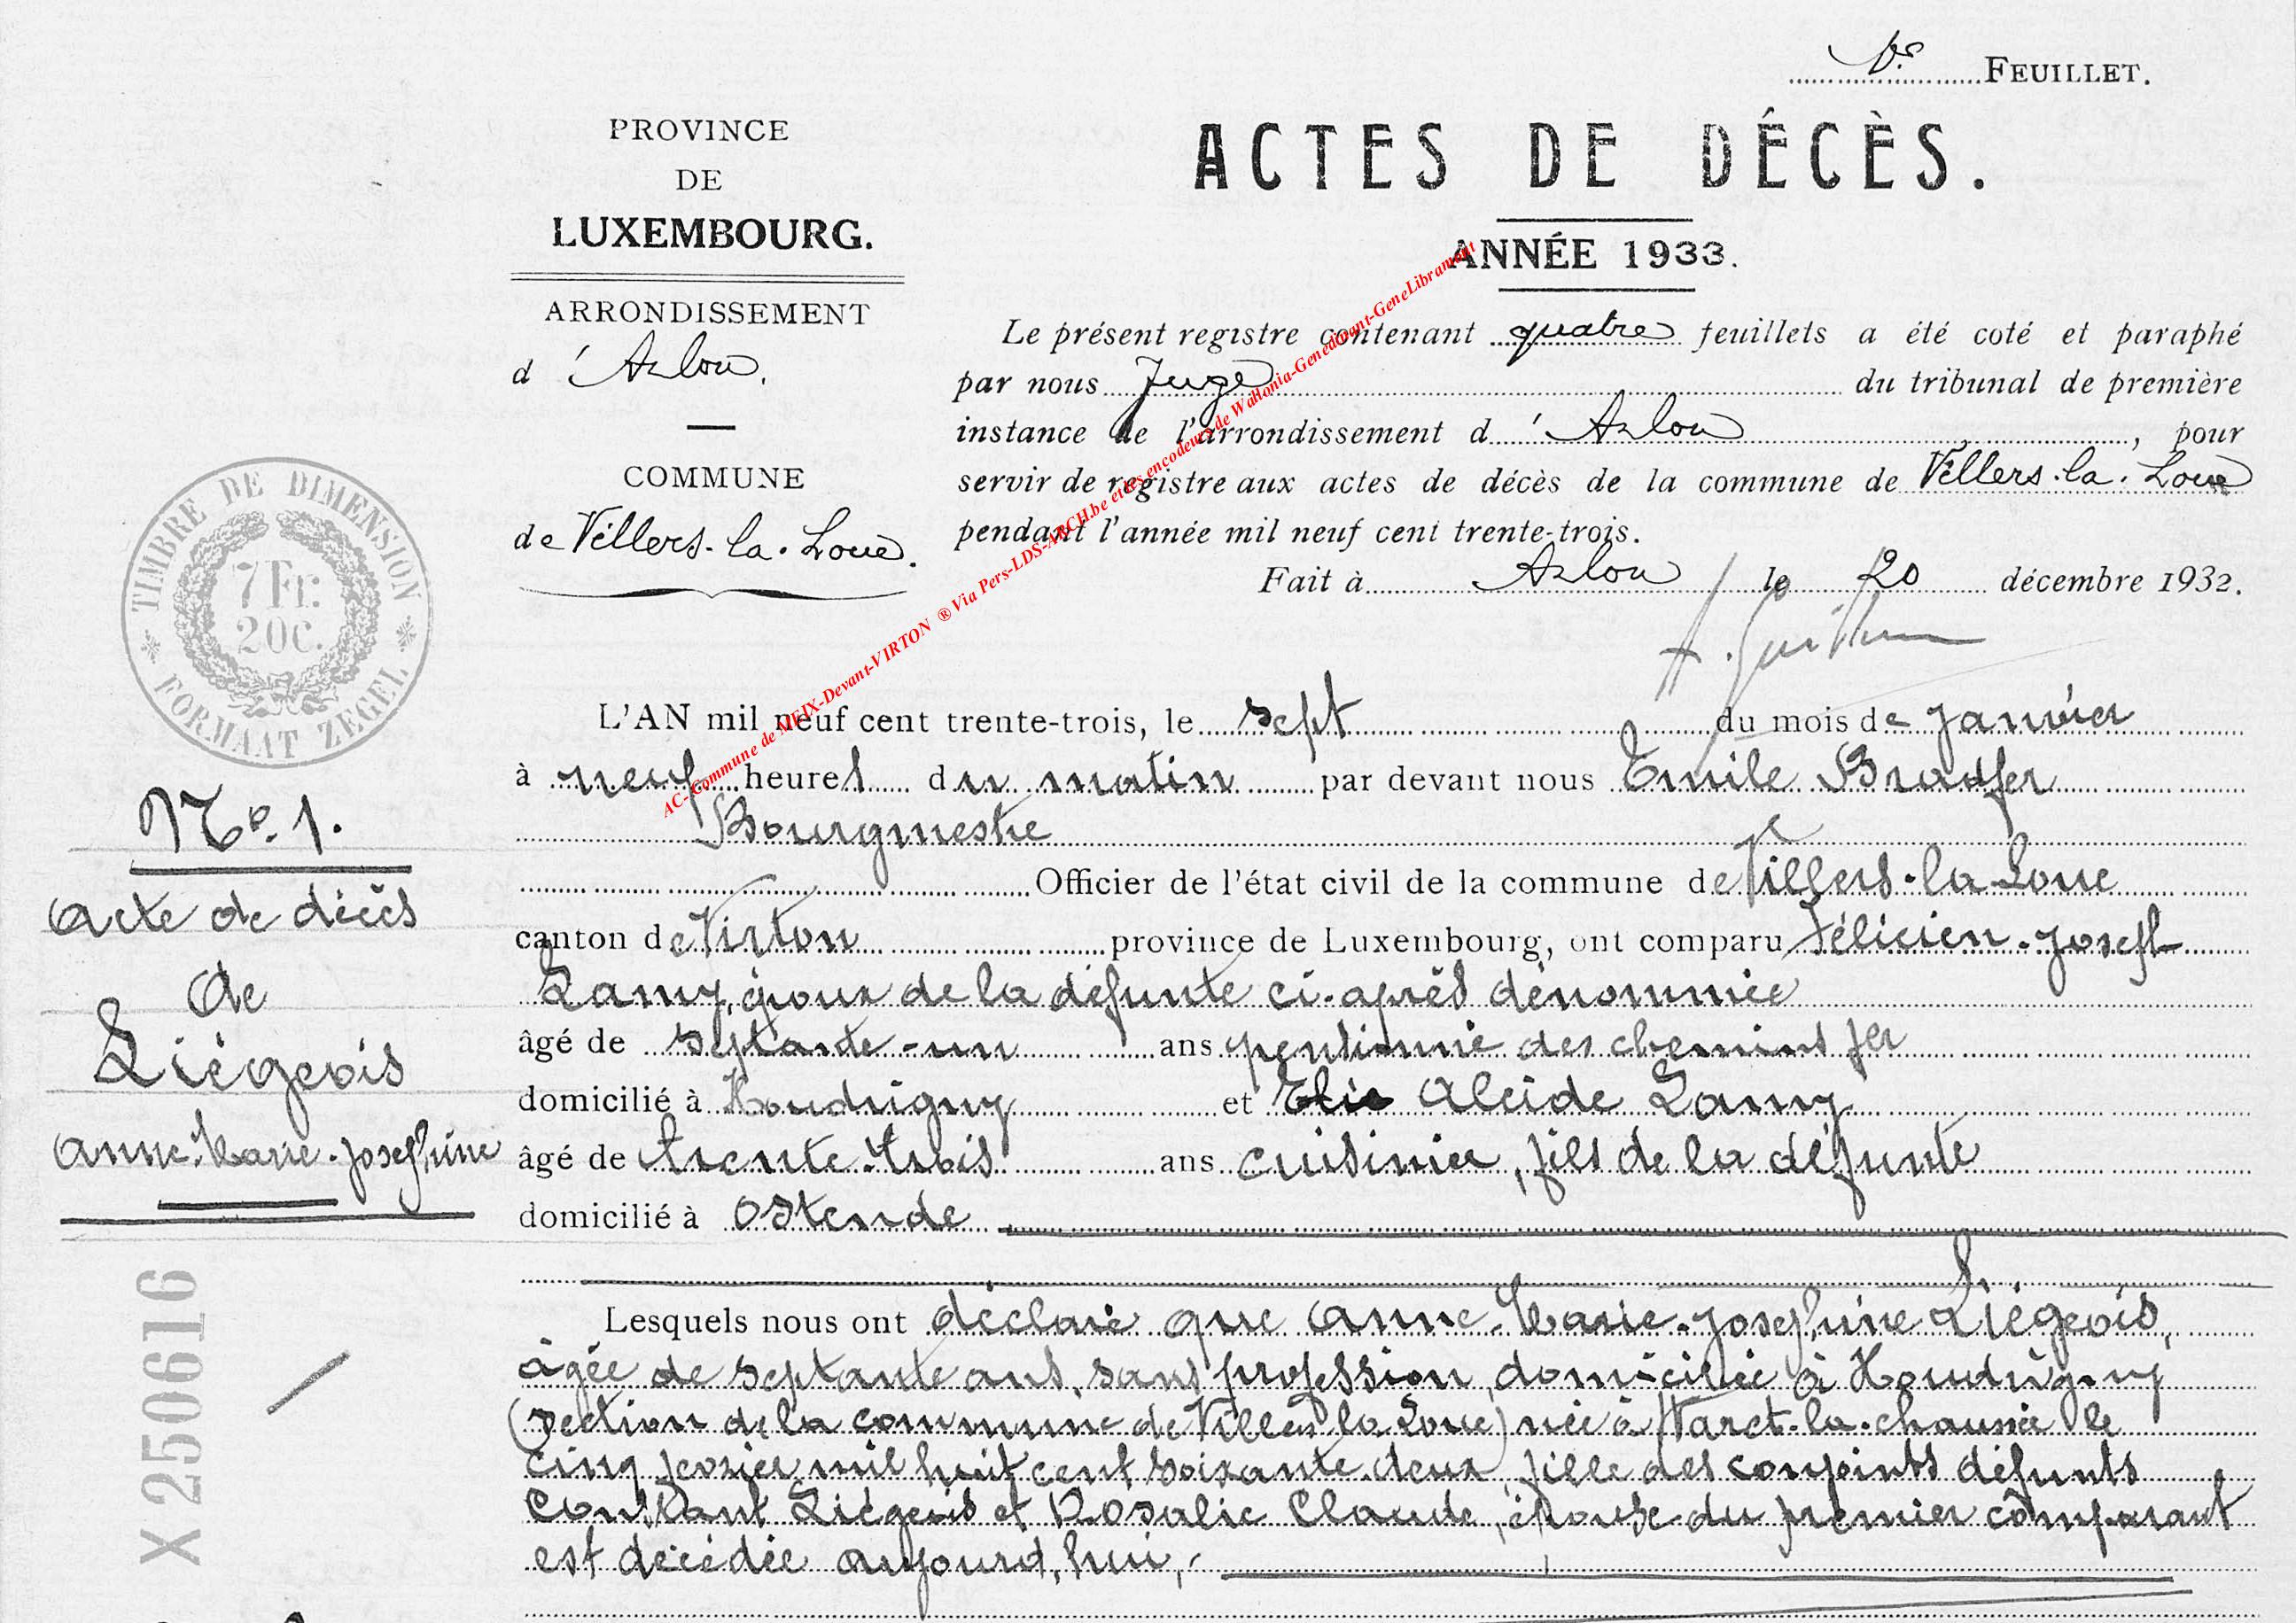 1er FEUILLET.
PROVINCE
DE
LUXEMBOURG.
ARRONDISSEMENT
d'Arlon.
COMMUNE
de Villers-la-Loue.
ACTES DE DÉCÈS.
ANNÉE 1933.
Le présent registre contenant quatre feuillets a été coté et paraphé
par nous Juge du tribunal de première
instance de l'arrondissement d'Arlon, pour
servir de registre aux actes de décès de la commune de Villers-la-Loue
pendant l'année mil neuf cent trente-trois.
Fait à Arlon le 20 décembre 1932.
TIMBRE DE DIMENSION
7 Fr.
20C.
FORMAAT ZEGEL
AC-Commune de MEIX-Devant-VIRTON ® Via Pers-LDS-ARCH.be et des encodeurs de Wallonia-Genedinant-GeneLibramont
No. 1.
Acte de décès
de
Liégeois
Anne-Marie-Joséphine
X 250616
L'AN mil neuf cent trente-trois, le sept du mois de janvier
à neuf heures du matin par devant nous Emile Bradfer
Bourgmestre
Officier de l'état civil de la commune de Villers-la-Loue
canton de Virton province de Luxembourg, ont comparu Félicien-Joseph
Lamy, époux de la défunte ci-après dénommée
âgé de septante-un ans pensionné des chemins fer
domicilié à Houdrigny et Elie Alcide Lamy
âgé de trente-trois ans cuisinier, fils de la défunte
domicilié à Ostende
Lesquels nous ont déclaré que Anne-Marie-Joséphine Liégeois,
âgée de septante ans, sans profession, domiciliée à Houdrigny
(section de la commune de Villers la Loue) née à Waret-la-chaussée le
cinq février mil huit cent soixante-deux, fille des conjoints défunts
Constant Liégeois et Rosalie Claude, épouse du premier comparant
est décédée aujourd'hui,